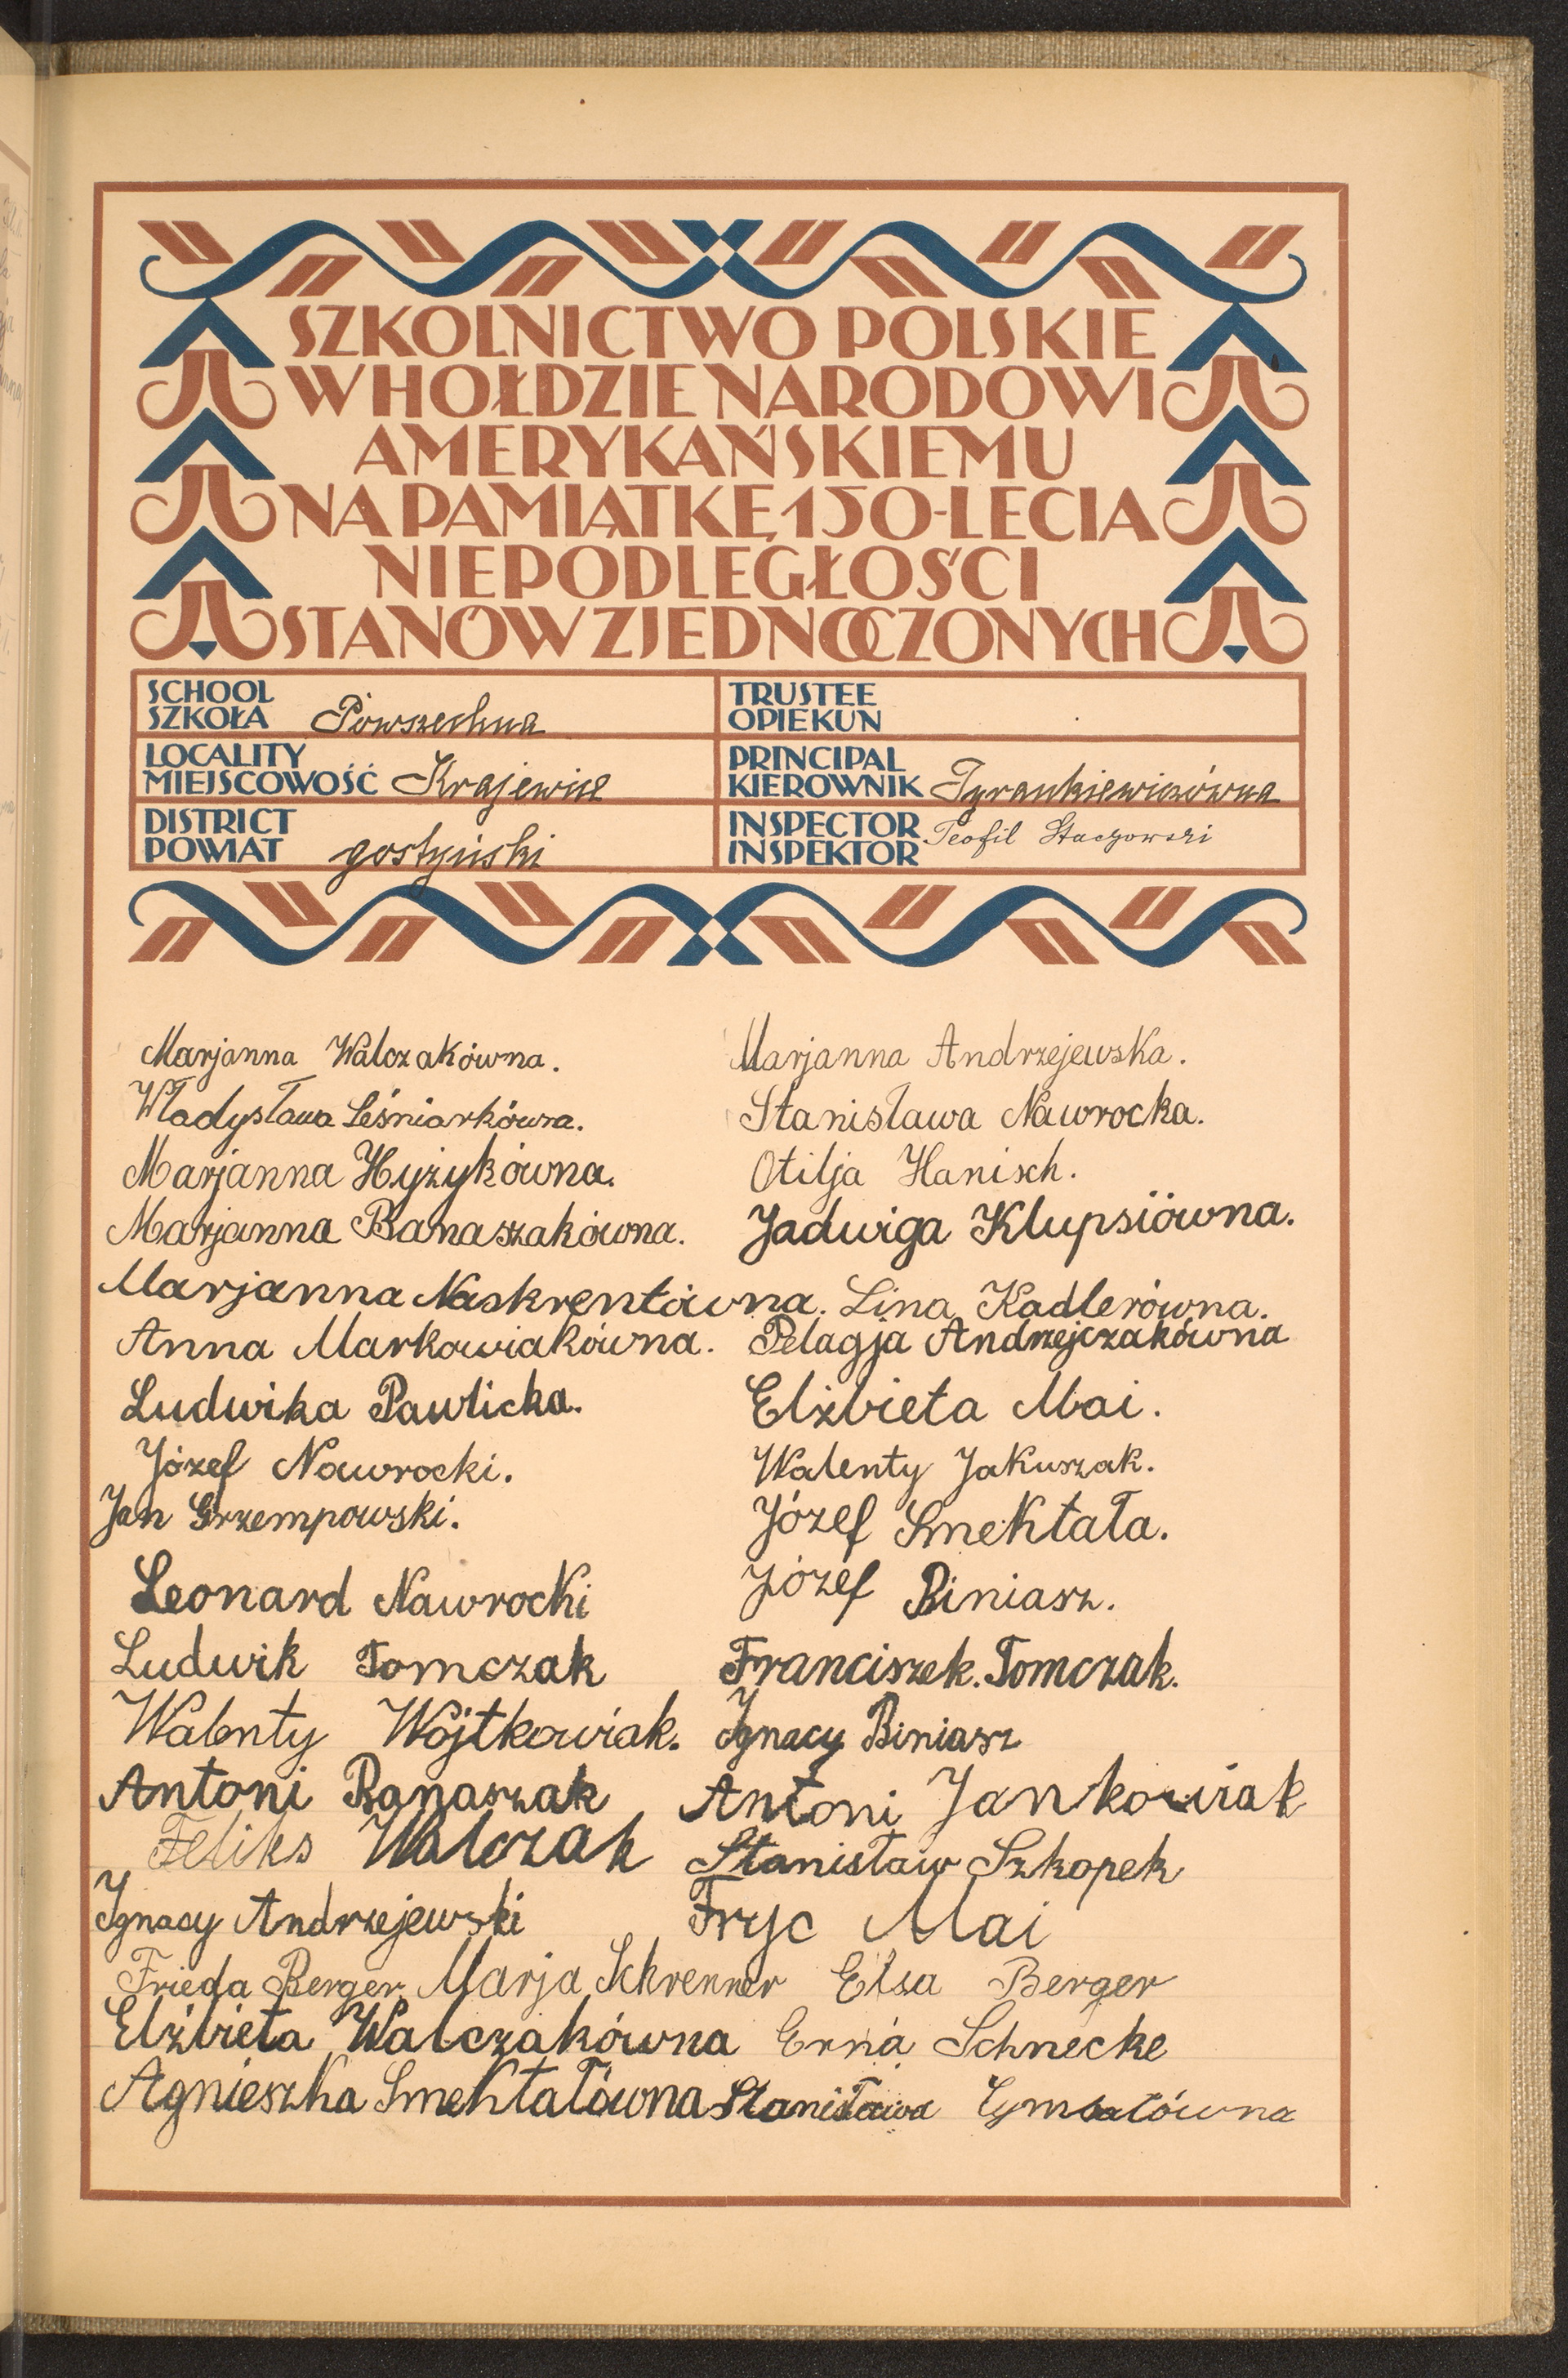 SZKOLNICTWO POLSKIE
W HOŁDZIE NARODOWI
AMERYKAŃSKIEMU
NA PAMIĄTKĘ 150-LECIA
NIEPODLEGŁOŚCI
STANÓW ZJEDNOCZONYCH
SCHOOL
SZKOŁA Powszechna
TRUSTEE
OPIEKUN
LOCALITY
MIEJSCOWOŚĆ Krajewice
PRINCIPAL
KIEROWNIK Tyrankiewiczówna
DISTRICT
POWIAT gostyński
INSPECTOR
INSPEKTOR Teofil
Marjanna Walczakówna. Marjanna Andrzejewska.
Władysława Leśniarkówna. Stanisława Nawrocka.
Marjanna Hyżykówna. Otilja Hanisch.
Marjanna Banaszakówna. Jadwiga Klupsiówna.
Marjanna Naskrentówna. Lina Kadlerówna.
Anna Markowiakówna. Pelagja Andrzejczakówna
Ludwika Pawlicka. Elżbieta Mai.
Józef Nawrocki. Walenty Jakuszak.
Jan Grzempowski. Józef Smektała.
Leonard Nawrocki Józef Biniasz.
Ludwik Tomczak Franciszek. Tomczak.
Walenty Wojtkowiak. Ignacy Biniasz
Antoni Banaszak Antoni Jankowiak
Feliks Walczak Stanisław Szkopek
Ignacy Andrzejewski Fryc Mai
Frieda Berger Marja Schrenner Elsa Berger
Elżbieta Walczakówna Erna Schnecke
Agnieszka Smektałówna Stanisława